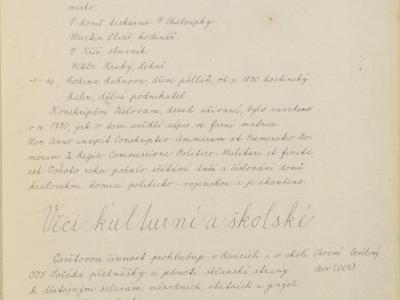 místo
V domě tiskárna F. Chaloupky
Martin Eliáš, hodinář
V. Kříž, obuvník
MUDr. Hrubý, lékař
46, Rodina Kahnova, dříve pilnář, od r. 1890 hostinský
Kahn, důlní podnikatel
Konskripční číslování, dosud užívané, bylo zavedeno
v r. 1770, jak o tom svědčí zápis ve farní matrice
Hoc Anno incepit Conskriptio Animarum et Numeratio Do-
morum à Regia Commissione Politico-Militari et finita
est Tohoto roku počalo sčítání duší a číslování domů
královskou komisí politicko-vojenskou a je skončeno.
Věci kulturní a školské
Osvětovou činnost prohlubuje v Kosicích i v okolí Okresní Osvětový
sbor (OOS)
OOS Pořádá přednášky a jednotí občanské strany
k důstojným oslavám národních, státních a jiných